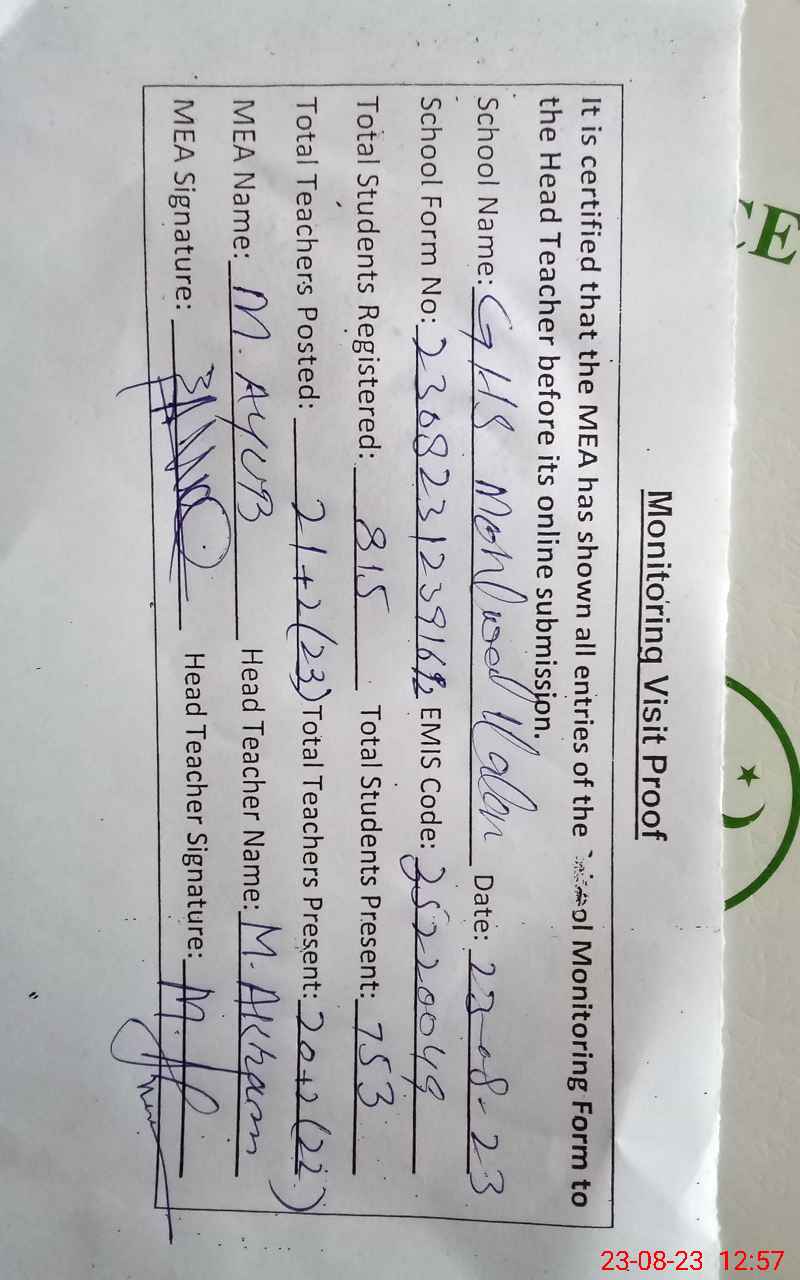 CE
Monitoring Visit Proof
It is certified that the MEA has shown all entries of the ol Monitoring Form to
the Head Teacher before its online submission.
School Name: GHS Mohlwal Date: 23-08-23
School Form No: EMIS Code: 35220049
Total Students Registered: 815 Total Students Present: 753
Total Teachers Posted: 21+2(23) Total Teachers Present: 20+2(22)
MEA Name: M. AYUB Head Teacher Name: M. Akham
MEA Signature: Head Teacher Signature: M.
23-08-23 12:57